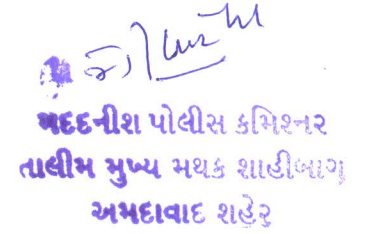 મદદનીશ પોલીસ કમિશ્નર
તાલીમ મુખ્ય મથક શાહીબાગ
અમદાવાદ શહેર